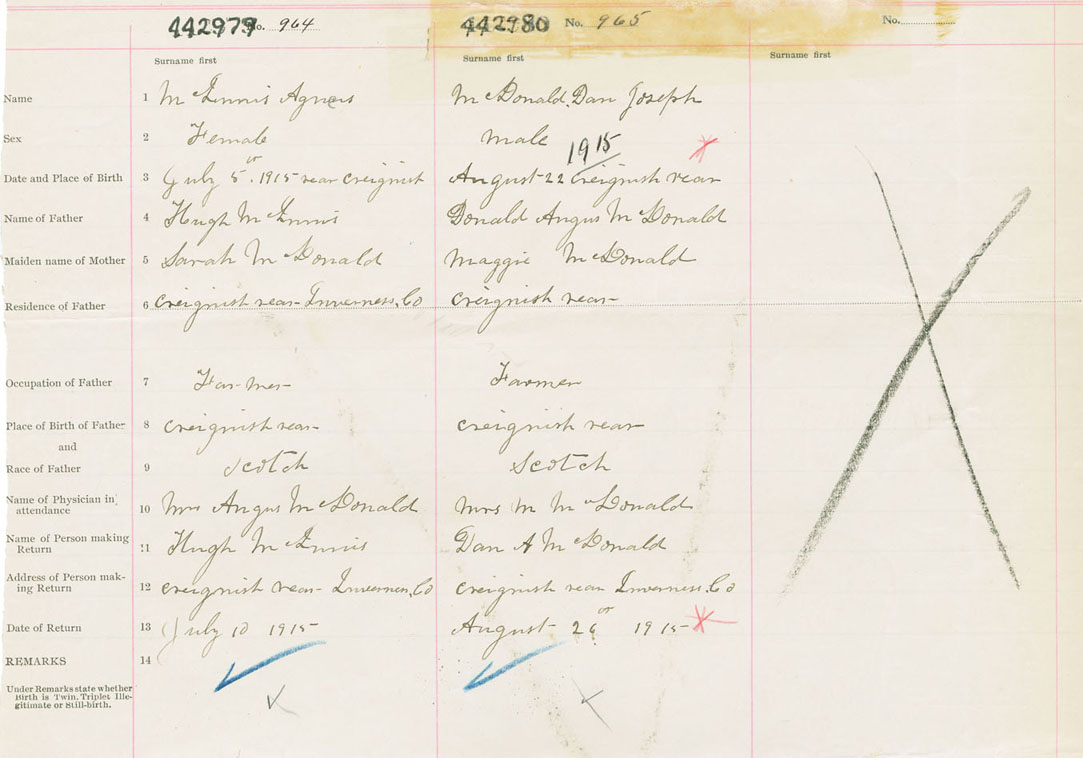 442979 No. 964 442980 No. 965 No.
Surname first Surname first Surname first
Name 1 McInnis Agnes McDonald, Dan Joseph
Sex 2 Female male
1915
Date and Place of Birth 3 July 5. 1915 rear creignish August 22 Creignish rear
Name of Father 4 Hugh McInnis Donald Angus McDonald
Maiden name of Mother 5 Sarah McDonald Maggie McDonald
Residence of Father 6 creignish rear Inverness, Co creignish rear
Occupation of Father 7 Farmer Farmer
Place of Birth of Father 8 creignish rear creignish rear
and
Race of Father 9 Scotch Scotch
Name of Physician in
attendance 10 Mrs Angus McDonald Mrs M McDonald
Name of Person making
Return 11 Hugh McInnis Dan A McDonald
Address of Person mak-
ing Return 12 creignish rear Inverness, Co creignish rear Inverness, Co
Date of Return 13 July 10 1915 August 26 1915
REMARKS 14
Under Remarks state whether
Birth is Twin, Triplet Ille-
gitimate or Still-birth.